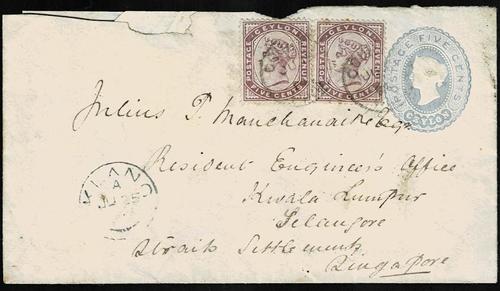 POSTAGE CEYLON REVENUE FIVE CENTS
POSTAGE CEYLON REVENUE FIVE CENTS
POSTAGE FIVE CENTS CEYLON
Julius P. Manchanaike Esqr.
Resident Engineer's Office
Kwala Lumpur
Selangore
Straits Settlements
Singapore
KLANG
A